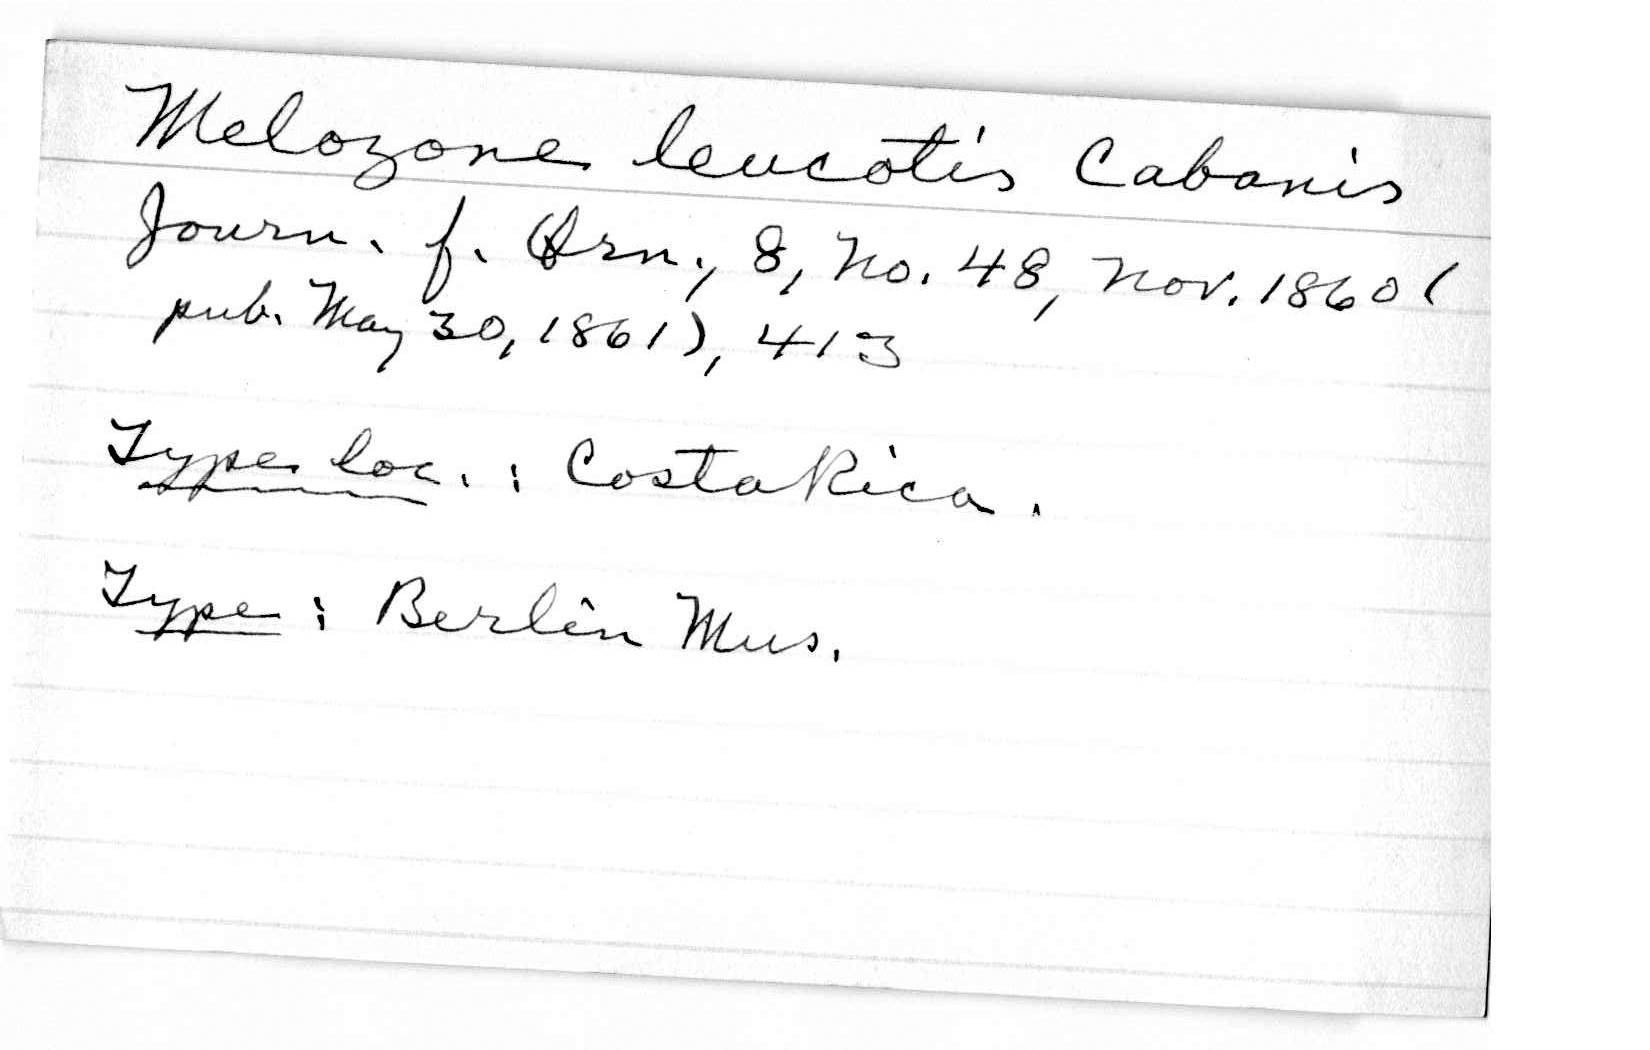 Melozone leucotis Cabanis
Journ. f. Orn., 8, No. 48, Nov. 1860 (
pub. May 30, 1861), 413
Type loc. : Costa Rica .
Type : Berlin Mus.